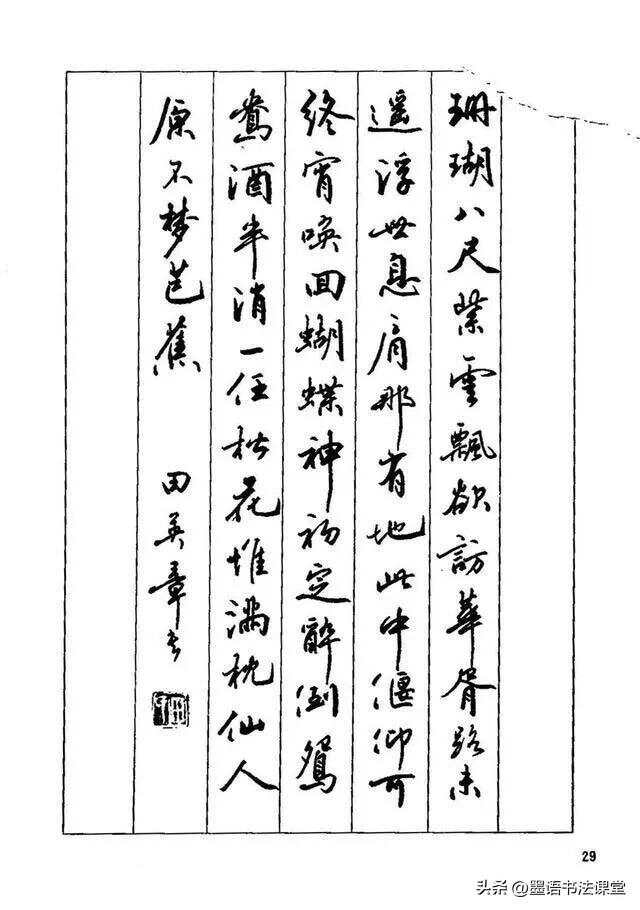 珊瑚八尺紫雲飄欲訪華胥路未
遥浮世息肩那有地此中偃仰可
终宵唤回蝴蝶神初定醉倒鴛
鴦酒半消一任松花堆满枕仙人
原不梦芭蕉 田英章书
29
头条@墨语书法课堂